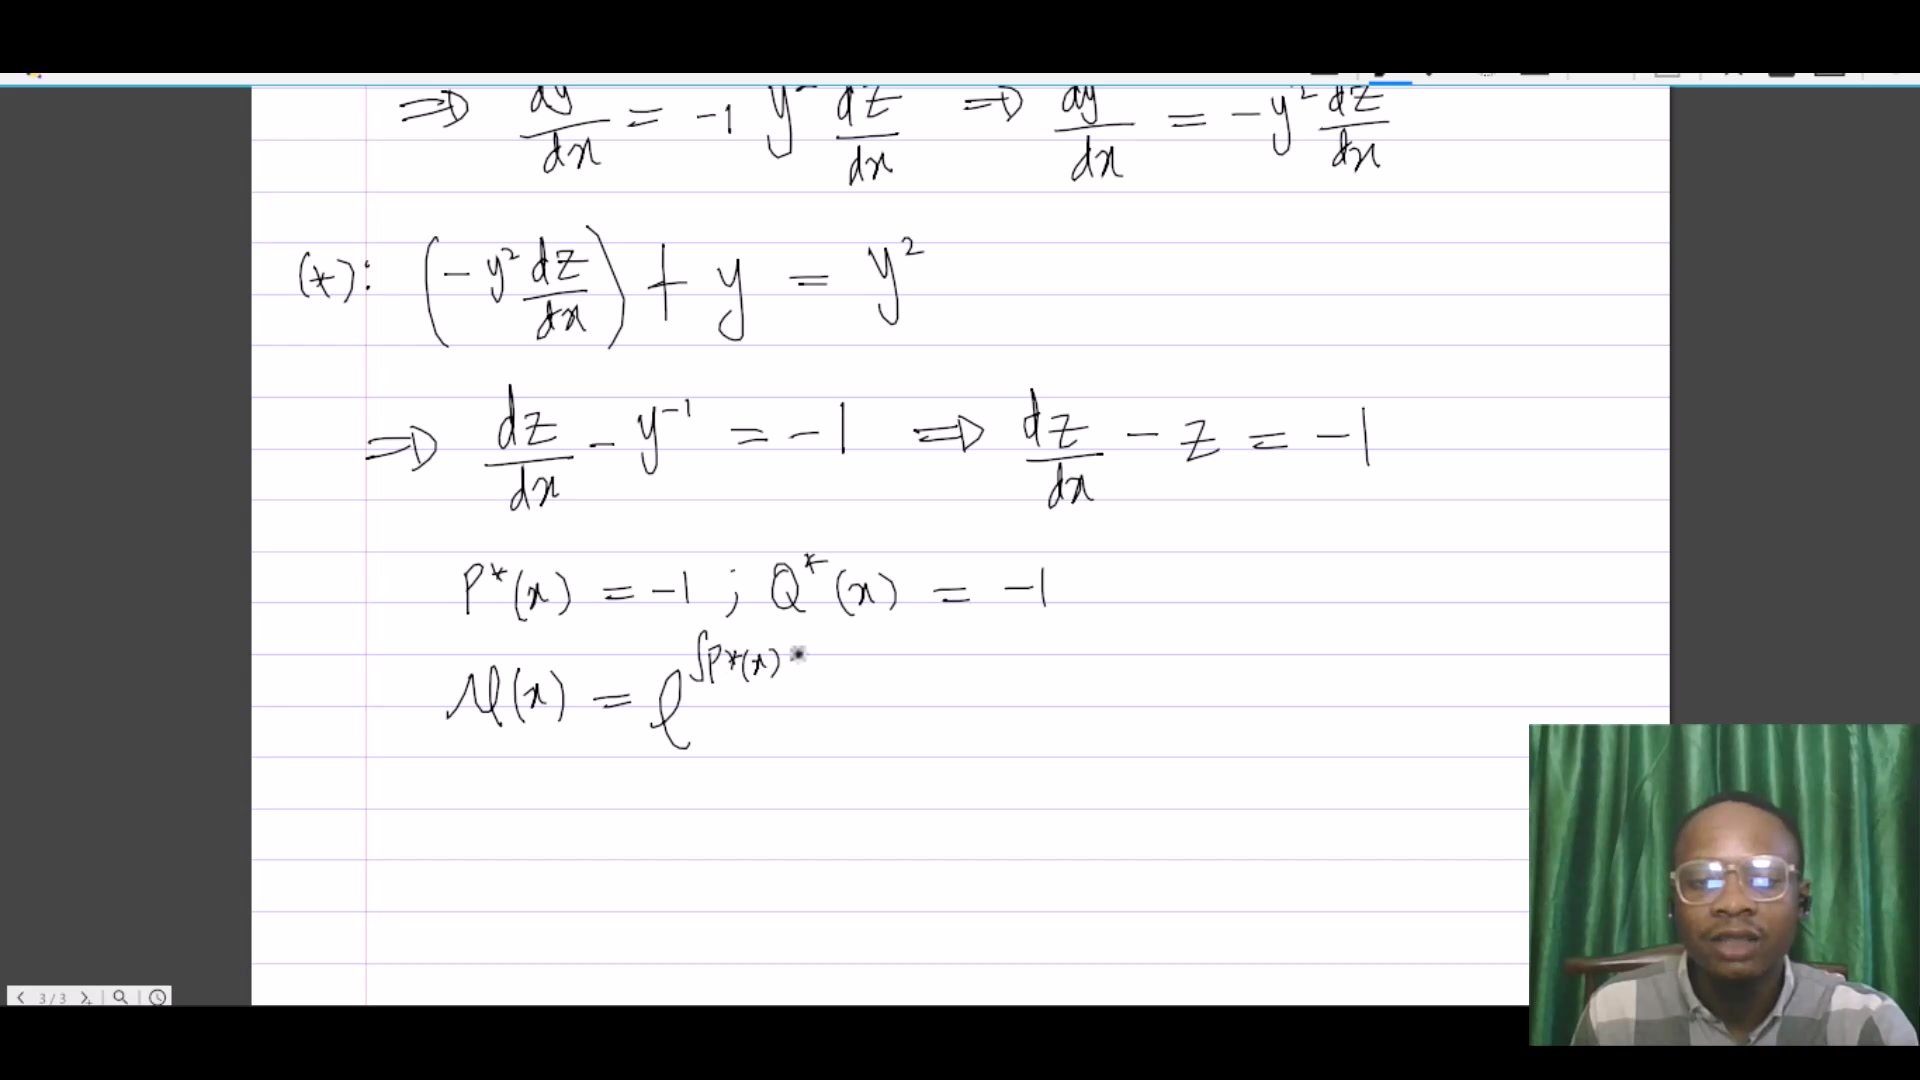 ⇒ dy/dx = -1 y² dz/dx ⇒ dy/dx = -y² dz/dx
(*): (-y² dz/dx) + y = y²
⇒ dz/dx - y⁻¹ = -1 ⇒ dz/dx - z = -1
P*(x) = -1 ; Q*(x) = -1
μ(x) = e^∫P*(x)
3/3